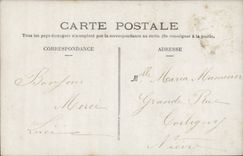 CARTE POSTALE
Tous les pays étrangers n'acceptent pas la correspondance au recto. (Se renseigner à la poste).
CORRESPONDANCE
ADRESSE
Bonjour
Merci
Mlle Maria
Grande Rue
Nièvre